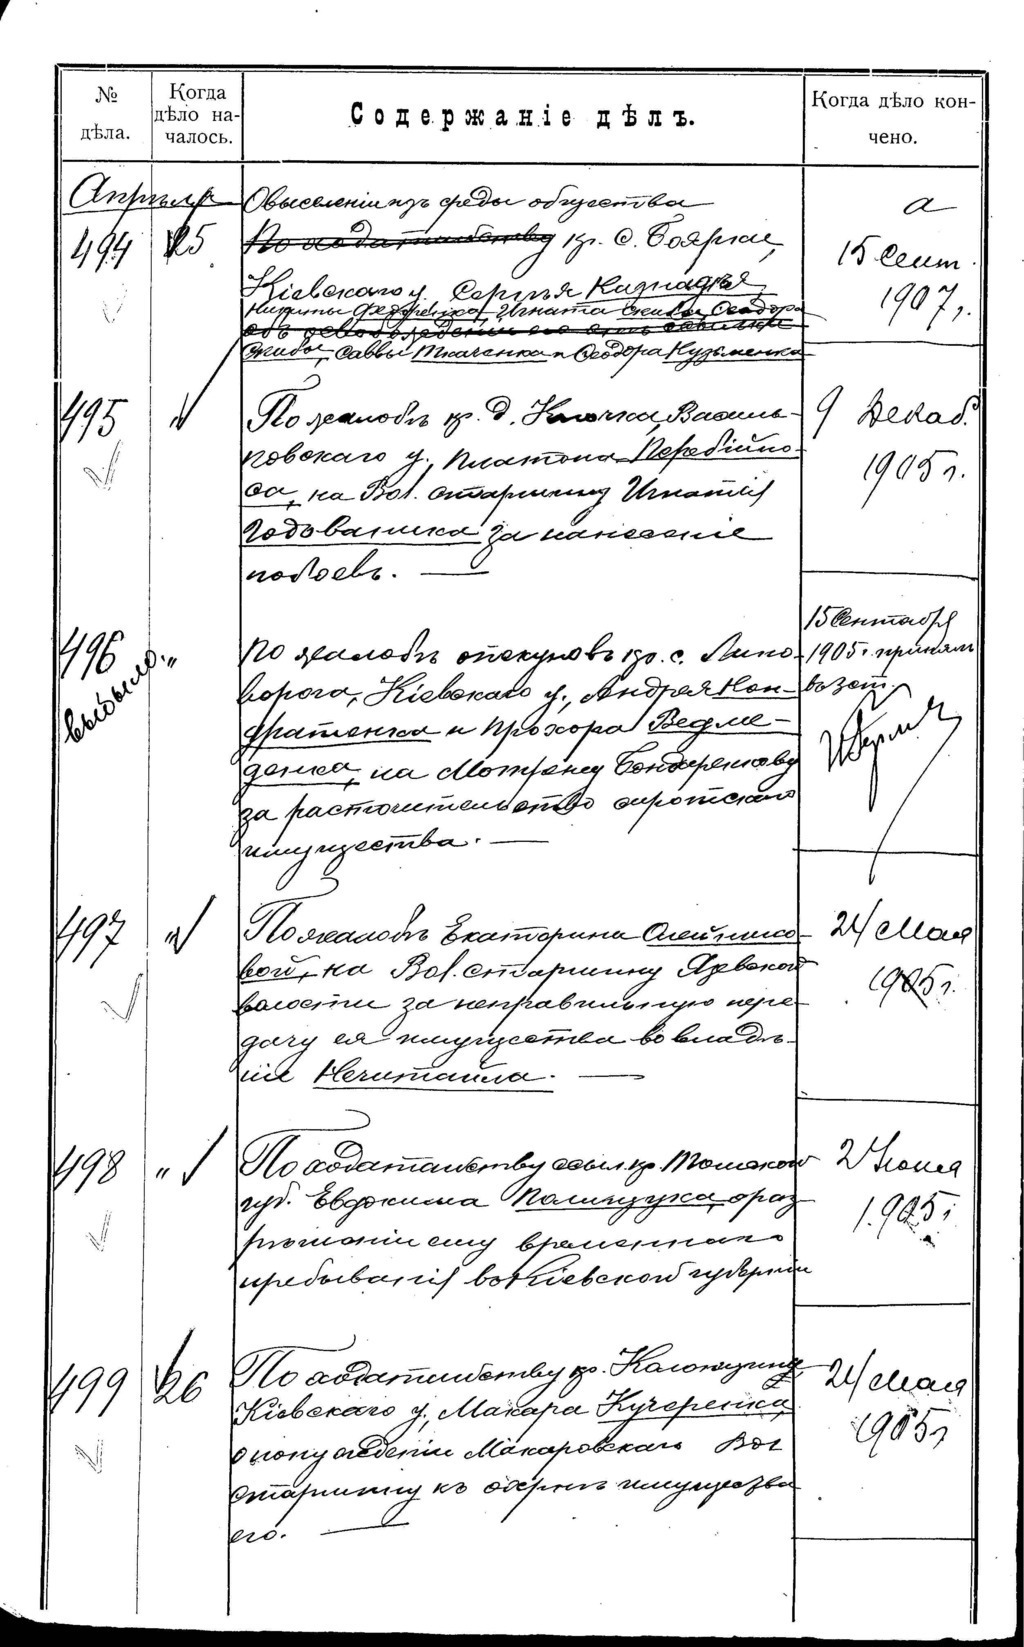 № дѣла.
Когда дѣло началось.
Содержаніе дѣлъ.
Когда дѣло кончено.
Апрѣля
О выселеніи изъ среды общества
494 25 По ходатайству кр. с. Боярки,
Кіевскаго у. Сергѣя
Никиты Федоренка, Игната Скибы, Ѳеодора
Скибы, Саввы Ткаченка и Ѳеодора Кузьменка
а
15 Сент.
1907 г.
495 " По жалобѣ кр. д. Василь-
ковскаго у., Платона Перебійно-
са, на Вол. старшину Игнатія
Годованика за нанесеніе
побоевъ. —
9 Декаб.
1905 г.
496 "
выбыло.
По жалобѣ опекуновъ кр. с. Липо-
ворога, Кіевскаго у., Андрея Кон-
дратенка и Прохора Ведме-
денка, на Мотрену Бондаренкову
за расточительство сиротскаго
имущества. —
15 Сентября
1905 г. принялъ
497 " По жалобѣ Екатерины Олейнико-
вой, на Вол. старшину
волости за неправильную пере-
дачу ея имущества во владѣ-
ніе Нечитайла. —
24 Мая
1905 г.
498 " По ходатайству ссыл. кр. Томской
губ. Евдокима Полищука, о раз-
рѣшеніи ему временнаго
пребыванія въ Кіевской губерніи
2 Іюня
1905 г.
499 26 По ходатайству кр.
Кіевскаго у., Макара Кучеренка,
о понужденіи Макаровскаго Вол
старшину къ охранѣ имущества
его. —
24 Мая
1905 г.